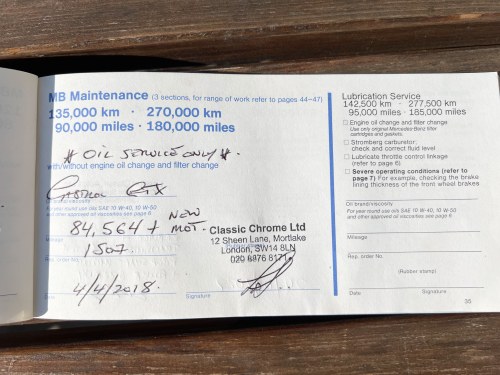 MB Maintenance (3 sections, for range of work refer to pages 44–47)
135,000 km · 270,000 km
90,000 miles · 180,000 miles
# OIL SERVICE ONLY #.
with/without engine oil change and filter change
Castrol GTX
Oil brand/viscosity
For year round use oils SAE 10 W-40, 10 W-50
and other approved oil viscosities see page 6
84,564 + NEW MOT.
1507
Rep. order No.
Classic Chrome Ltd
12 Sheen Lane, Mortlake
London, SW14 8LN
020 8876 8171
4/4/2018.
Date
Signature
Lubrication Service
142,500 km · 277,500 km
95,000 miles · 185,000 miles
Engine oil change and filter change
Use only original Mercedes-Benz filter
cartridges and gaskets.
Stromberg carburetor:
check and correct fluid level
Lubricate throttle control linkage
(refer to page 6)
Severe operating conditions (refer to
page 7) For example, checking the brake
lining thickness of the front wheel brakes
Oil brand/viscosity
For year round use oils SAE 10 W-40, 10 W-50
and other approved oil viscosities see page 6
Mileage
Rep. order No.
(Rubber stamp)
Date
Signature